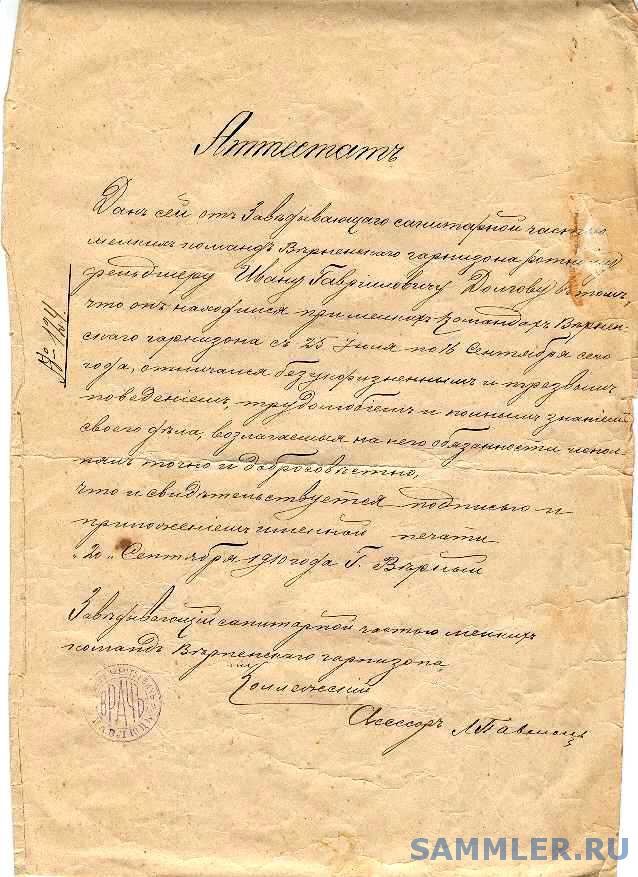 Аттестатъ
Данъ сей отъ Завѣдывающаго санитарной частью
мелкихъ командъ Вѣрненскаго гарнизона ротному
фельдшеру Ивану Гавриловичу Долгову въ томъ,
что онъ находился при мелкихъ командахъ Вѣрнен-
скаго гарнизона съ 25 Іюля по 16 Сентября сего
года, отличался безукоризненнымъ и трезвымъ
поведеніемъ, трудолюбіемъ и полнымъ знаніемъ
своего дѣла, возлагаемыя на него обязанности испол-
нялъ точно и добросовѣстно,
что и свидѣтельствуется подписью и
приложеніемъ именной печати
"20" Сентября 1910 года Г. Вѣрный
Завѣдывающій санитарной частью мелкихъ
командъ Вѣрненскаго гарнизона,
Коллежскій
Асессоръ
№ 194
ВРАЧЪ
SAMMLER.RU